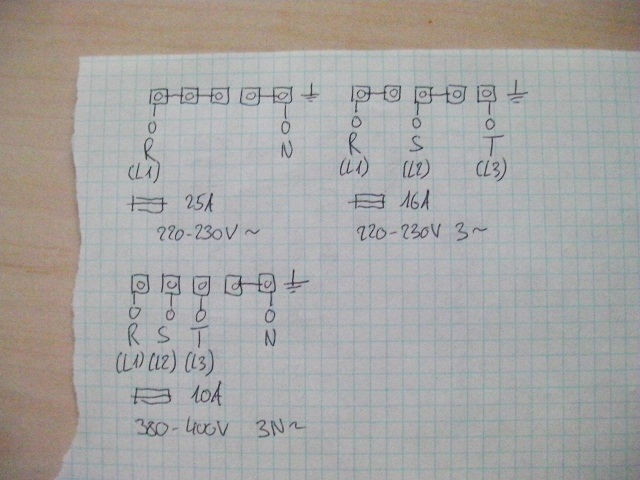 R N
(L1)
25A
220-230V ~
R S T
(L1) (L2) (L3)
16A
220-230V 3~
R S T N
(L1) (L2) (L3)
10A
380-400V 3N~